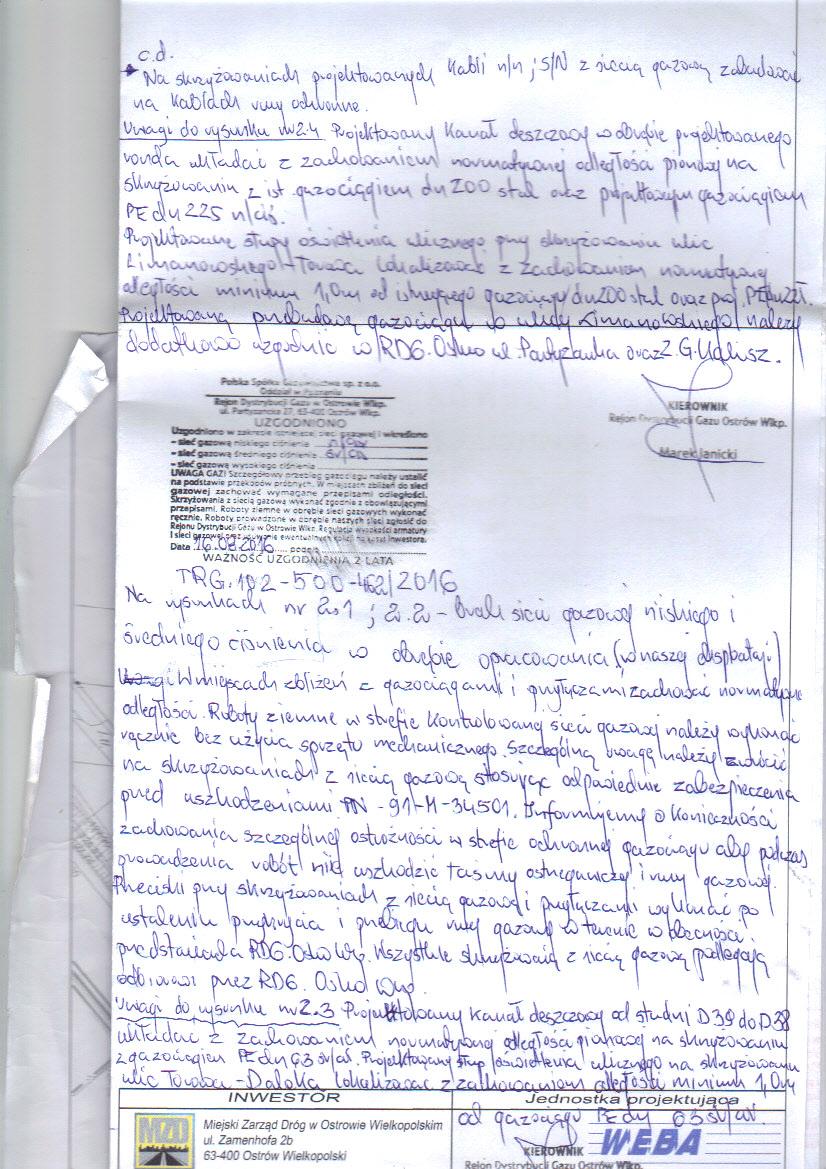 c.d.
Na skrzyżowaniach projektowanych kabli n/n ; S/N z siecią gazową zabudować
na kablach rury ochronne.
Uwagi do rysunku nr 2.4 Projektowany Kanał deszczowy w obrębie projektowanego
ronda układać z zachowaniem normatywnej odległości pionowej na
skrzyżowaniu z ist. gazociągiem dn 200 stal oraz projektowanym gazociągiem
PE dn 225 n/ciś.
Projektowane słupy oświetlenia ulicznego przy skrzyżowaniu ulic
Limanowskiego - Torowa lokalizować z zachowaniem normatywnej
odległości minimum 1,0m od istniejącego gazociągu dn 200 stal oraz proj. PE dn 225.
Projektowaną przebudowę gazociągu w ulicy Limanowskiego należy
dodatkowo uzgodnić w RDG. Ostrów ul. Partyzancka oraz Z.G. Kalisz.
Polska Spółka Gazownictwa sp. z o.o.
Oddział w Poznaniu
Rejon Dystrybucji Gazu w Ostrowie Wlkp.
ul. Partyzancka 27, 63-400 Ostrów Wlkp.
UZGODNIONO
Uzgodniono w zakresie istniejącej sieci gazowej i wkreślono
– sieć gazową niskiego ciśnienia
– sieć gazową średniego ciśnienia
– sieć gazową wysokiego ciśnienia
UWAGA GAZ! Szczegółowy przebieg gazociągu należy ustalić
na podstawie przekopów próbnych. W miejscach zbliżeń do sieci
gazowej zachować wymagane przepisami odległości.
Skrzyżowania z siecią gazową wykonać zgodnie z obowiązującymi
przepisami. Roboty ziemne w obrębie sieci gazowych wykonać
ręcznie. Roboty prowadzone w obrębie naszych sieci zgłosić do
Rejonu Dystrybucji Gazu w Ostrowie Wlkp. Regulacja wysokości armatury
i sieci gazowej oraz usuwanie ewentualnych kolizji na koszt inwestora.
Data 16.08.2016 podpis
WAŻNOŚĆ UZGODNIENIA 2 LATA
KIEROWNIK
Rejon Dystrybucji Gazu Ostrów Wlkp.
Marek Janicki
TRG.102-500-462/2016
Na rysunkach nr 2.1 ; 2.2 - brak sieci gazowej niskiego i
średniego ciśnienia w obrębie opracowania (w naszej eksploatacji)
Uwagi W miejscach zbliżeń z gazociągami i przyłączami zachować normatywne
odległości. Roboty ziemne w strefie kontrolowanej sieci gazowej należy wykonać
ręcznie bez użycia sprzętu mechanicznego. Szczególną uwagę należy zwrócić
na skrzyżowaniach z siecią gazową stosując odpowiednie zabezpieczenia
przed uszkodzeniami PN-91-M-34501. Informujemy o konieczności
zachowania szczególnej ostrożności w strefie ochronnej gazociągu aby podczas
prowadzenia robót nie uszkodzić taśmy ostrzegawczej i rury gazowej.
Przeciski przy skrzyżowaniach z siecią gazową i przyłączami wykonać po
ustaleniu przykrycia i przebiegu rury gazowej w terenie w obecności
przedstawiciela RDG. Ostrów Wlp. Wszystkie skrzyżowania z siecią gazową podlegają
odbiorowi przez RDG. Ostrów Wlp.
Uwagi do rysunku nr 2.3 Projektowany Kanał deszczowy od studni D39 do D38
układać z zachowaniem normatywnej odległości pionowej na skrzyżowaniu
z gazociągiem PE dn 63 śr/ciś. Projektowany słup oświetlenia ulicznego na skrzyżowaniu
ulic Torowa - Daleka lokalizować z zachowaniem odległości minimum 1,0m
od gazociągu PE dn 63 śr/ciś.
INWESTOR
Jednostka projektująca
MZD
Miejski Zarząd Dróg w Ostrowie Wielkopolskim
ul. Zamenhofa 2b
63-400 Ostrów Wielkopolski
WEBA
KIEROWNIK
Rejon Dystrybucji Gazu Ostrów Wlkp.